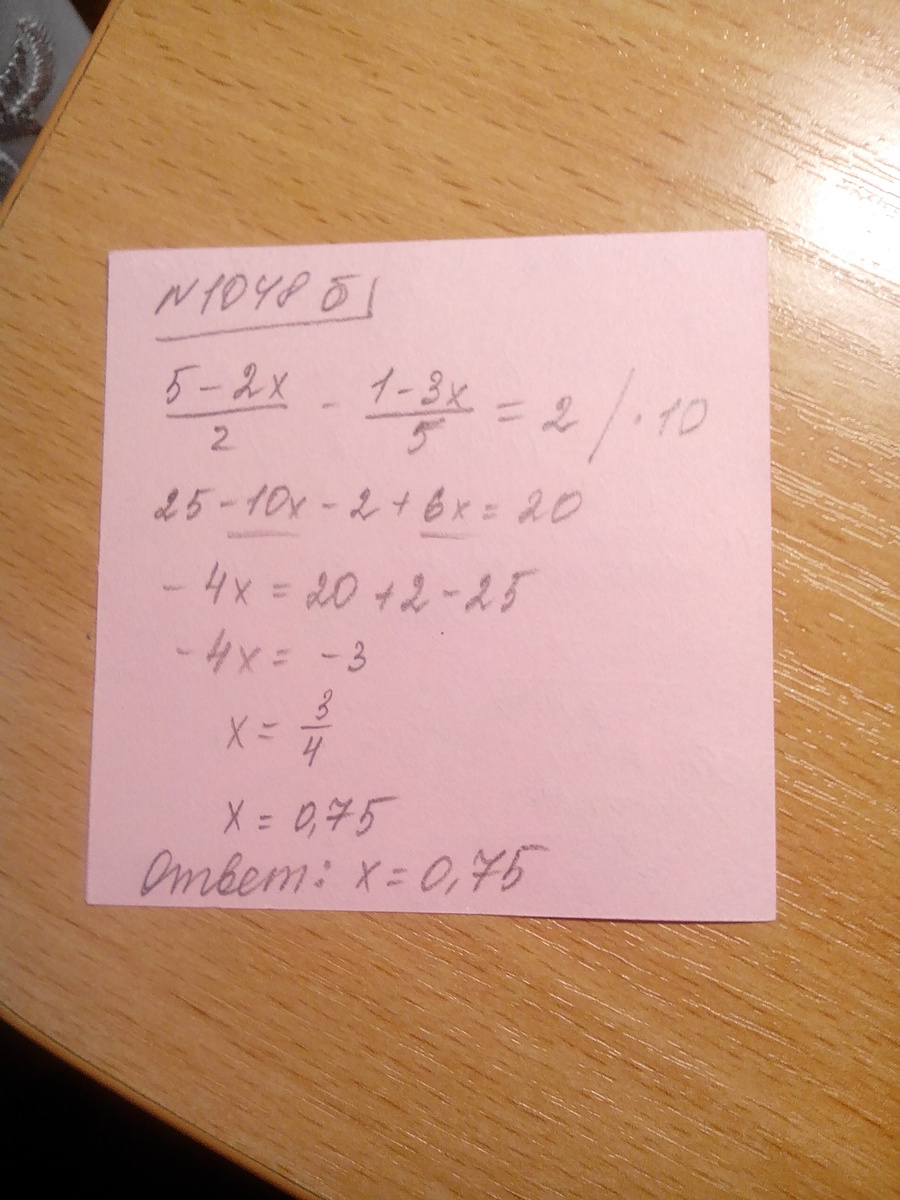 N1048 б
5-2x/2 - 1-3x/5 = 2 / ·10
25-10x-2+6x=20
-4x=20+2-25
-4x=-3
x=3/4
x=0,75
Ответ: x=0,75